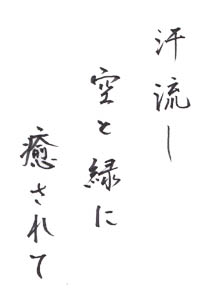 汗流し
空と緑に
癒されて